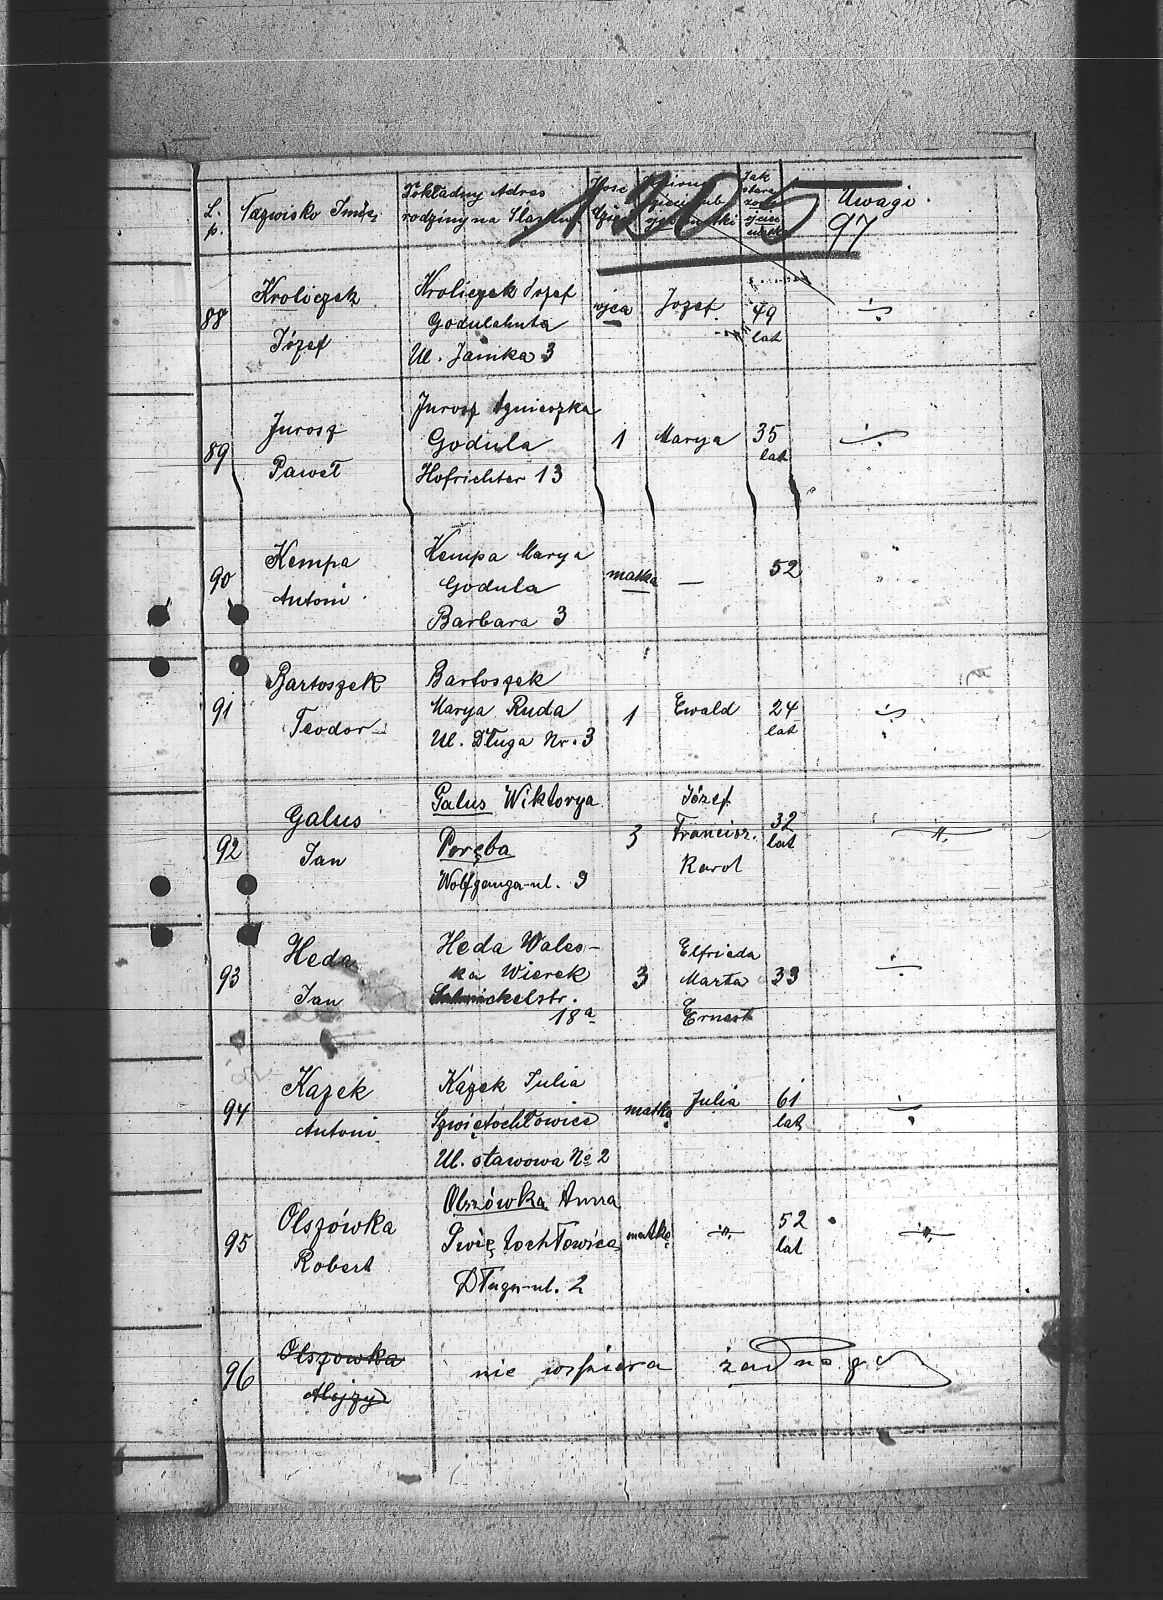 L. p.
Nazwisko Imię
Dokładny Adres
rodziny na Śląsku
Ilość
dzieci
Jak
stara
żona
ojciec
matka
Uwagi.
1205
97
88
Kroliczek
Józef
Kroliczek Józef
Godulahuta
Ul. Janika 3
ojca
Jozef
49
lat
÷
89
Jurosz
Paweł
Jurosz Agnieszka
Godula
Hofrichter 13
1
Marya
35
lat
÷
90
Kempa
Antoni
Kempa Marya
Godula
Barbara 3
matka
—
52
91
Bartoszek
Teodor
Bartoszek
Marya Ruda
Ul. Długa Nr. 3
1
Ewald
24
lat
÷
92
Galus
Jan
Galus Wiktorya
Poręba
Wolfganga-ul. 9
3
Józef
Francisz.
Karol
32
lat
—"—
93
Heda
Jan
Heda Wales-
ka Wierek
18a
3
Elfrieda
Marta
Ernest
33
÷
94
Kazek
Antoni
Kazek Julia
Szwiętochłowice
Ul. stawowa No 2
matkę
Julia
61
lat
÷
95
Olszówka
Robert
Olszówka Anna
Swiętochłowice
Długa-ul. 2
matkę
—"—
52
lat
—"—
96
Olszowka
Alojzy
nie wspiera żadnego